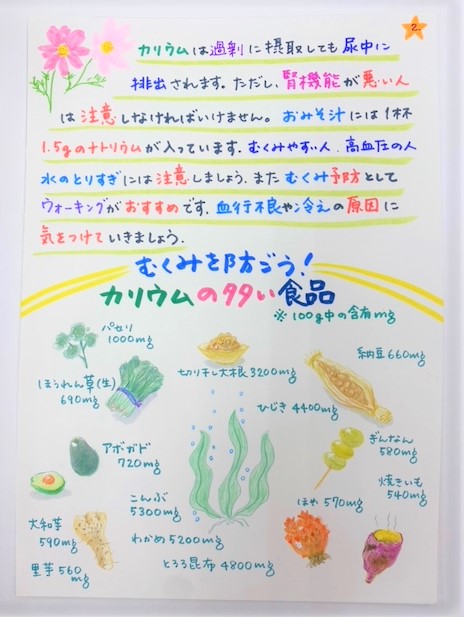 2.
カリウムは過剰に摂取しても尿中に
排出されます。ただし、腎機能が悪い人
は注意しなければいけません。おみそ汁には1杯
1.5gのナトリウムが入っています。むくみやすい人、高血圧の人
水のとりすぎには注意しましょう。またむくみ予防として
ウォーキングがおすすめです。血行不良や冷えの原因に
気をつけていきましょう。
むくみを防ごう!
カリウムの多い食品
※100g中の含有mg
パセリ
1000mg
切り干し大根3200mg
納豆660mg
ほうれん草(生)
690mg
ひじき4400mg
ぎんなん
580mg
アボガド
720mg
焼きいも
540mg
こんぶ
5300mg
ほや570mg
大和芋
590mg
わかめ5200mg
里芋560
mg
とろろ昆布4800mg